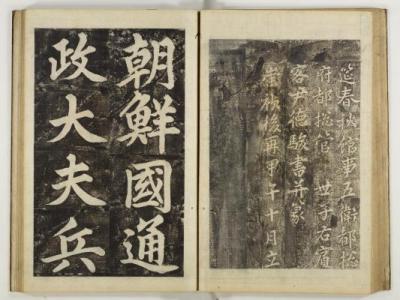 筵春秋館事五衛都捴
府都捴管 世子右賓
客尹德駿書并篆
崇禎後再甲午十月立
朝鮮國通
政大夫兵